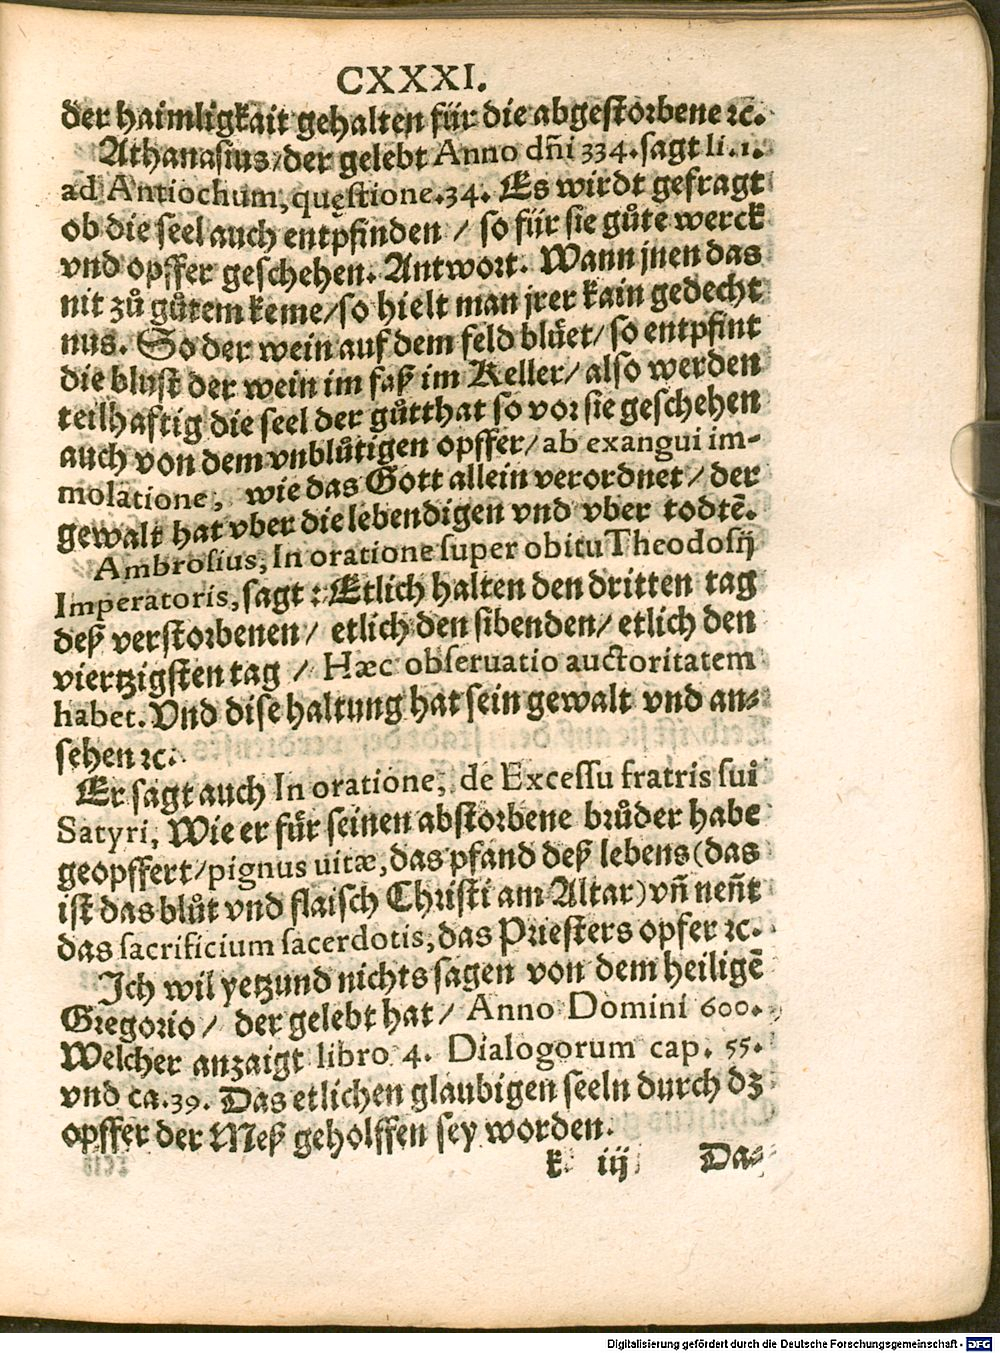 CXXXI.
der haimligkait gehalten für die abgestorbene ꝛc.
Athanasius/der gelebt Anno dñi 334.sagt li.1.
ad Antiochum, quęstione.34. Es wirdt gefragt
ob die seel auch entpfinden / so für sie gůte werck
vnd opffer geschehen. Antwort. Wann jnen das
nit zů gůtem keme/so hielt man jrer kain gedecht
nus. So der wein auf dem feld blůet/ so entpfint
die blust der wein im faß im Keller/ also werden
teilhaftig die seel der gůtthat so vor sie geschehen
auch von dem vnblůtigen opffer/ab exangui im-
molatione, wie das Gott allein verordnet/ der
gewalt hat vber die lebendigen vnd vber todtē.
Ambrosius, In oratione super obitu Theodosij
Imperatoris, sagt : Etlich halten den dritten tag
deß verstorbenen/ etlich den sibenden/ etlich den
viertzigsten tag / Hæc obseruatio auctoritatem
habet. Vnd dise haltung hat sein gewalt vnd an-
sehen ꝛc.
Er sagt auch In oratione, de Excessu fratris sui
Satyri, Wie er fůr seinen abstorbene brůder habe
geopffert/pignus uitæ, das pfand deß lebens (das
ist das blůt vnd flaisch Christi am Altar) vñ neñt
das sacrificium sacerdotis, das Priesters opfer ꝛc.
Ich wil yetzund nichts sagen von dem heiligē
Gregorio/ der gelebt hat/ Anno Domini 600.
Welcher anzaigt libro 4. Dialogorum cap. 55.
vnd ca.39. Das etlichen glaubigen seeln durch dz
opffer der Meß geholffen sey worden.
k iij Das
Digitalisierung gefördert durch die Deutsche Forschungsgemeinschaft - DFG